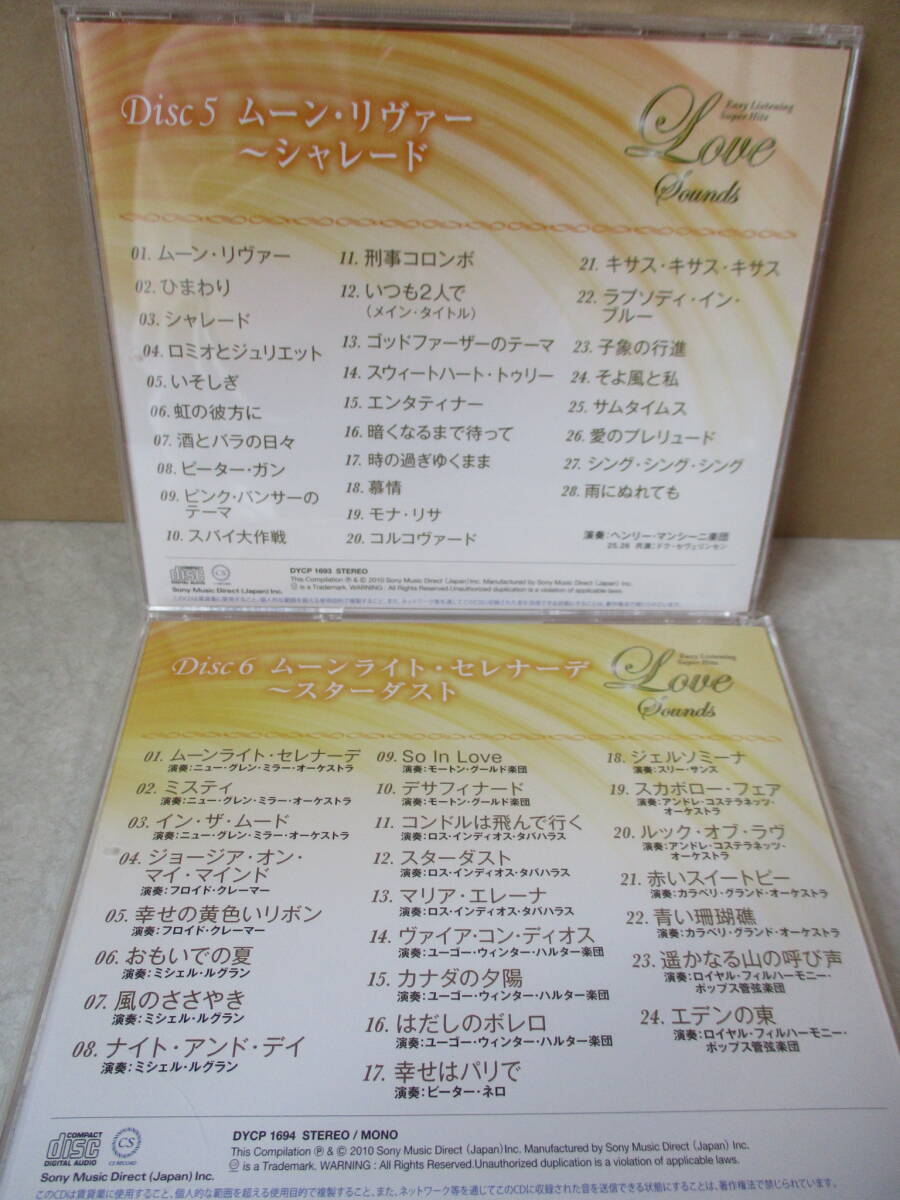 Disc 5 ムーン・リヴァー
～シャレード
Easy Listening
Super Hits
Love
Sounds
01. ムーン・リヴァー
02. ひまわり
03. シャレード
04. ロミオとジュリエット
05. いそしぎ
06. 虹の彼方に
07. 酒とバラの日々
08. ピーター・ガン
09. ピンク・パンサーの
テーマ
10. スパイ大作戦
11. 刑事コロンボ
12. いつも2人で
（メイン・タイトル）
13. ゴッドファーザーのテーマ
14. スウィートハート・トゥリー
15. エンタティナー
16. 暗くなるまで待って
17. 時の過ぎゆくまま
18. 慕情
19. モナ・リサ
20. コルコヴァード
21. キサス・キサス・キサス
22. ラプソディ・イン・
ブルー
23. 子象の行進
24. そよ風と私
25. サムタイムス
26. 愛のプレリュード
27. シング・シング・シング
28. 雨にぬれても
演奏：ヘンリー・マンシーニ楽団
25.26 共演：ドク・セヴェリンセン
COMPACT
disc
DIGITAL AUDIO
CS
DYCP 1693 STEREO
This Compilation Ⓟ & © 2010 Sony Music Direct (Japan) Inc. Manufactured by Sony Music Direct (Japan) Inc.
is a Trademark. WARNING : All Rights Reserved.Unauthorized duplication is a violation of applicable laws.
Sony Music Direct (Japan) Inc.
このCDは賃貸業に使用すること、個人的な範囲を超える使用目的で複製すること、また、ネットワーク等を通じてこのCDに収録された音を送信できる状態にすることは、著作権法で禁じられています。
Disc 6 ムーンライト・セレナーデ
～スターダスト
Easy Listening
Super Hits
Love
Sounds
01. ムーンライト・セレナーデ
演奏：ニュー・グレン・ミラー・オーケストラ
02. ミスティ
演奏：ニュー・グレン・ミラー・オーケストラ
03. イン・ザ・ムード
演奏：ニュー・グレン・ミラー・オーケストラ
04. ジョージア・オン・
マイ・マインド
演奏：フロイド・クレーマー
05. 幸せの黄色いリボン
演奏：フロイド・クレーマー
06. おもいでの夏
演奏：ミシェル・ルグラン
07. 風のささやき
演奏：ミシェル・ルグラン
08. ナイト・アンド・デイ
演奏：ミシェル・ルグラン
09. So In Love
演奏：モートン・グールド楽団
10. デサフィナード
演奏：モートン・グールド楽団
11. コンドルは飛んで行く
演奏：ロス・インディオス・タバハラス
12. スターダスト
演奏：ロス・インディオス・タバハラス
13. マリア・エレーナ
演奏：ロス・インディオス・タバハラス
14. ヴァイア・コン・ディオス
演奏：ユーゴー・ウィンター・ハルター楽団
15. カナダの夕陽
演奏：ユーゴー・ウィンター・ハルター楽団
16. はだしのボレロ
演奏：ユーゴー・ウィンター・ハルター楽団
17. 幸せはパリで
演奏：ピーター・ネロ
18. ジェルソミーナ
演奏：スリー・サンズ
19. スカボロー・フェア
演奏：アンドレ・コステラネッツ・
オーケストラ
20. ルック・オブ・ラヴ
演奏：アンドレ・コステラネッツ・
オーケストラ
21. 赤いスイートピー
演奏：カラベリ・グランド・オーケストラ
22. 青い珊瑚礁
演奏：カラベリ・グランド・オーケストラ
23. 遥かなる山の呼び声
演奏：ロイヤル・フィルハーモニー・
ポップス管弦楽団
24. エデンの東
演奏：ロイヤル・フィルハーモニー・
ポップス管弦楽団
COMPACT
disc
DIGITAL AUDIO
CS
CS RECORD
DYCP 1694 STEREO / MONO
This Compilation Ⓟ & © 2010 Sony Music Direct (Japan) Inc. Manufactured by Sony Music Direct (Japan) Inc.
is a Trademark. WARNING : All Rights Reserved.Unauthorized duplication is a violation of applicable laws.
Sony Music Direct (Japan) Inc.
このCDは賃貸業に使用すること、個人的な範囲を超える使用目的で複製すること、また、ネットワーク等を通じてこのCDに収録された音を送信できる状態にすることは、著作権法で禁じられています。